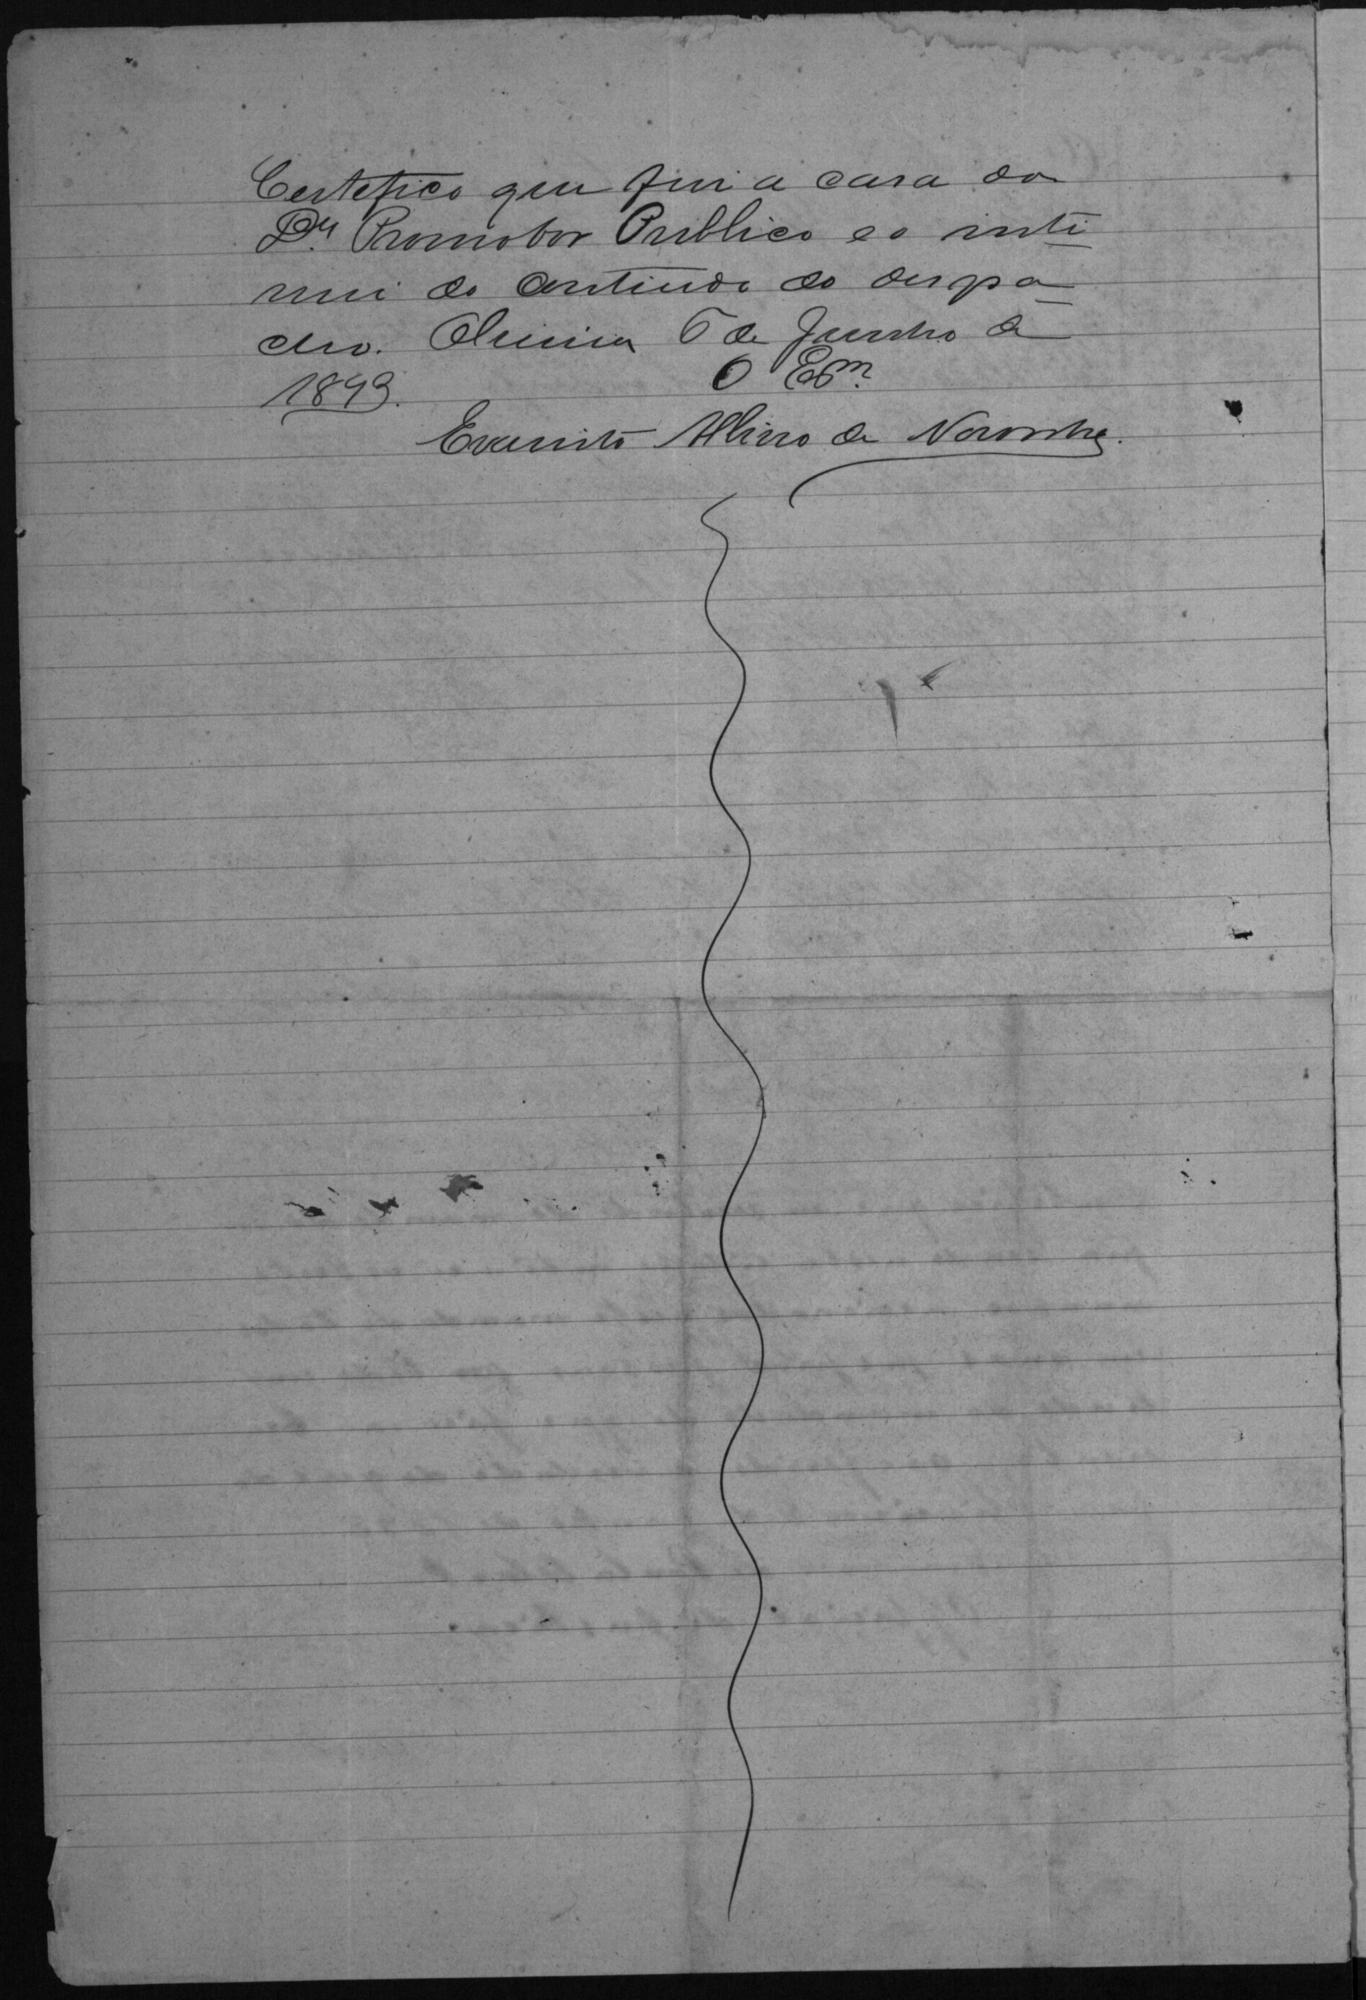 Certefico que fui a casa do
Dr. Promotor Publico e o inti
mei do contiudo do despa
cho. 6 de Junho de
1893. O Esm.
Evaristo Albino de Noronha.